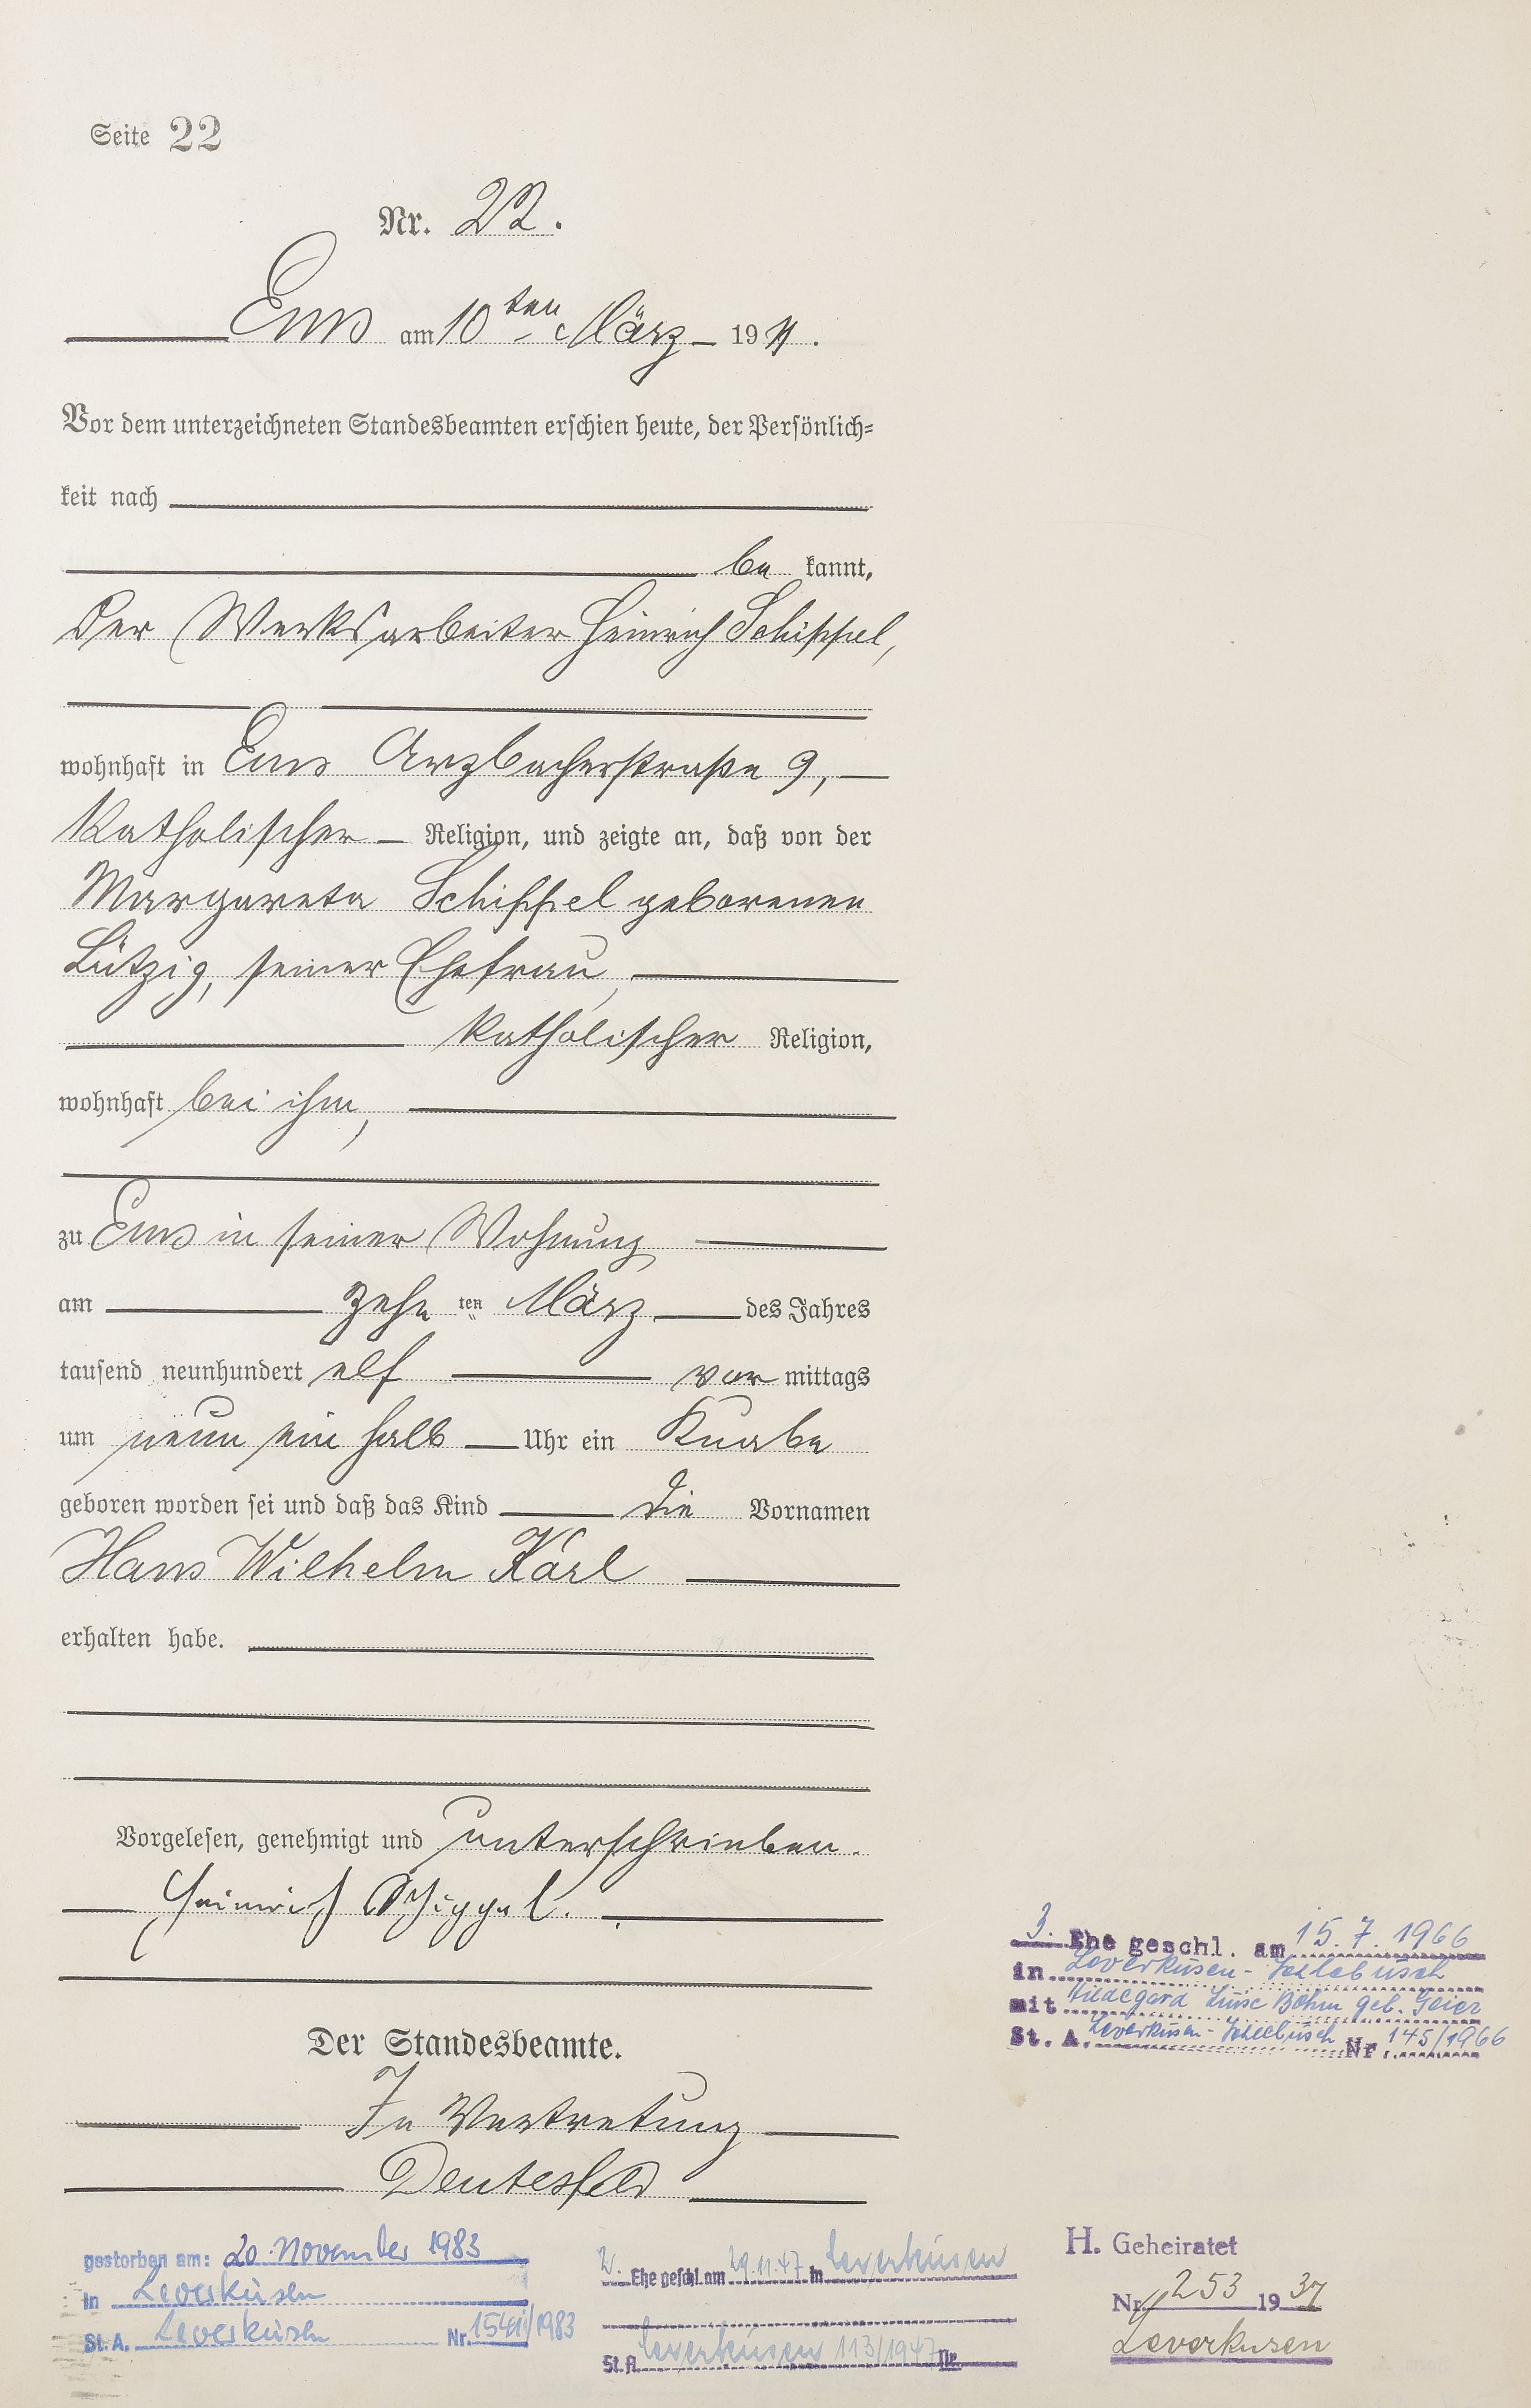 Seite 22
Nr. 22.
Ems am 10ten März 1911.
Vor dem unterzeichneten Standesbeamten erschien heute, der Persönlich=
keit nach
be kannt,
der Werksarbeiter Heinrich Schippel,
wohnhaft in Ems Arzbacherstraße 9,
katholischer Religion, und zeigte an, daß von der
Margareta Schippel geborenen
Lützig, seiner Ehefrau,
katholischer Religion,
wohnhaft bei ihm,
zu Ems in seiner Wohnung
am zehn ten März des Jahres
tausend neunhundert elf vor mittags
um neun ein halb Uhr ein Knabe
geboren worden sei und daß das Kind die Vornamen
Hans Wilhelm Karl
erhalten habe.
Vorgelesen, genehmigt und unterschrieben.
Heinrich Schippel.
3. Ehe geschl. am 15.7.1966
in Leverkusen-Schlebusch
mit Hildegard Luise Böhm geb. Geier
St. A. Leverkusen-Schlebusch Nr. 145/1966
Der Standesbeamte.
In Vertretung
Deutesfeld
gestorben am: 20. November 1983
in Leverkusen
St. A. Leverkusen Nr. /1983
2. Ehe geschl. am 29.11.47 in Leverkusen
St. A. Leverkusen 113/1947 Nr.
H. Geheiratet
Nr. 253 1937
Leverkusen